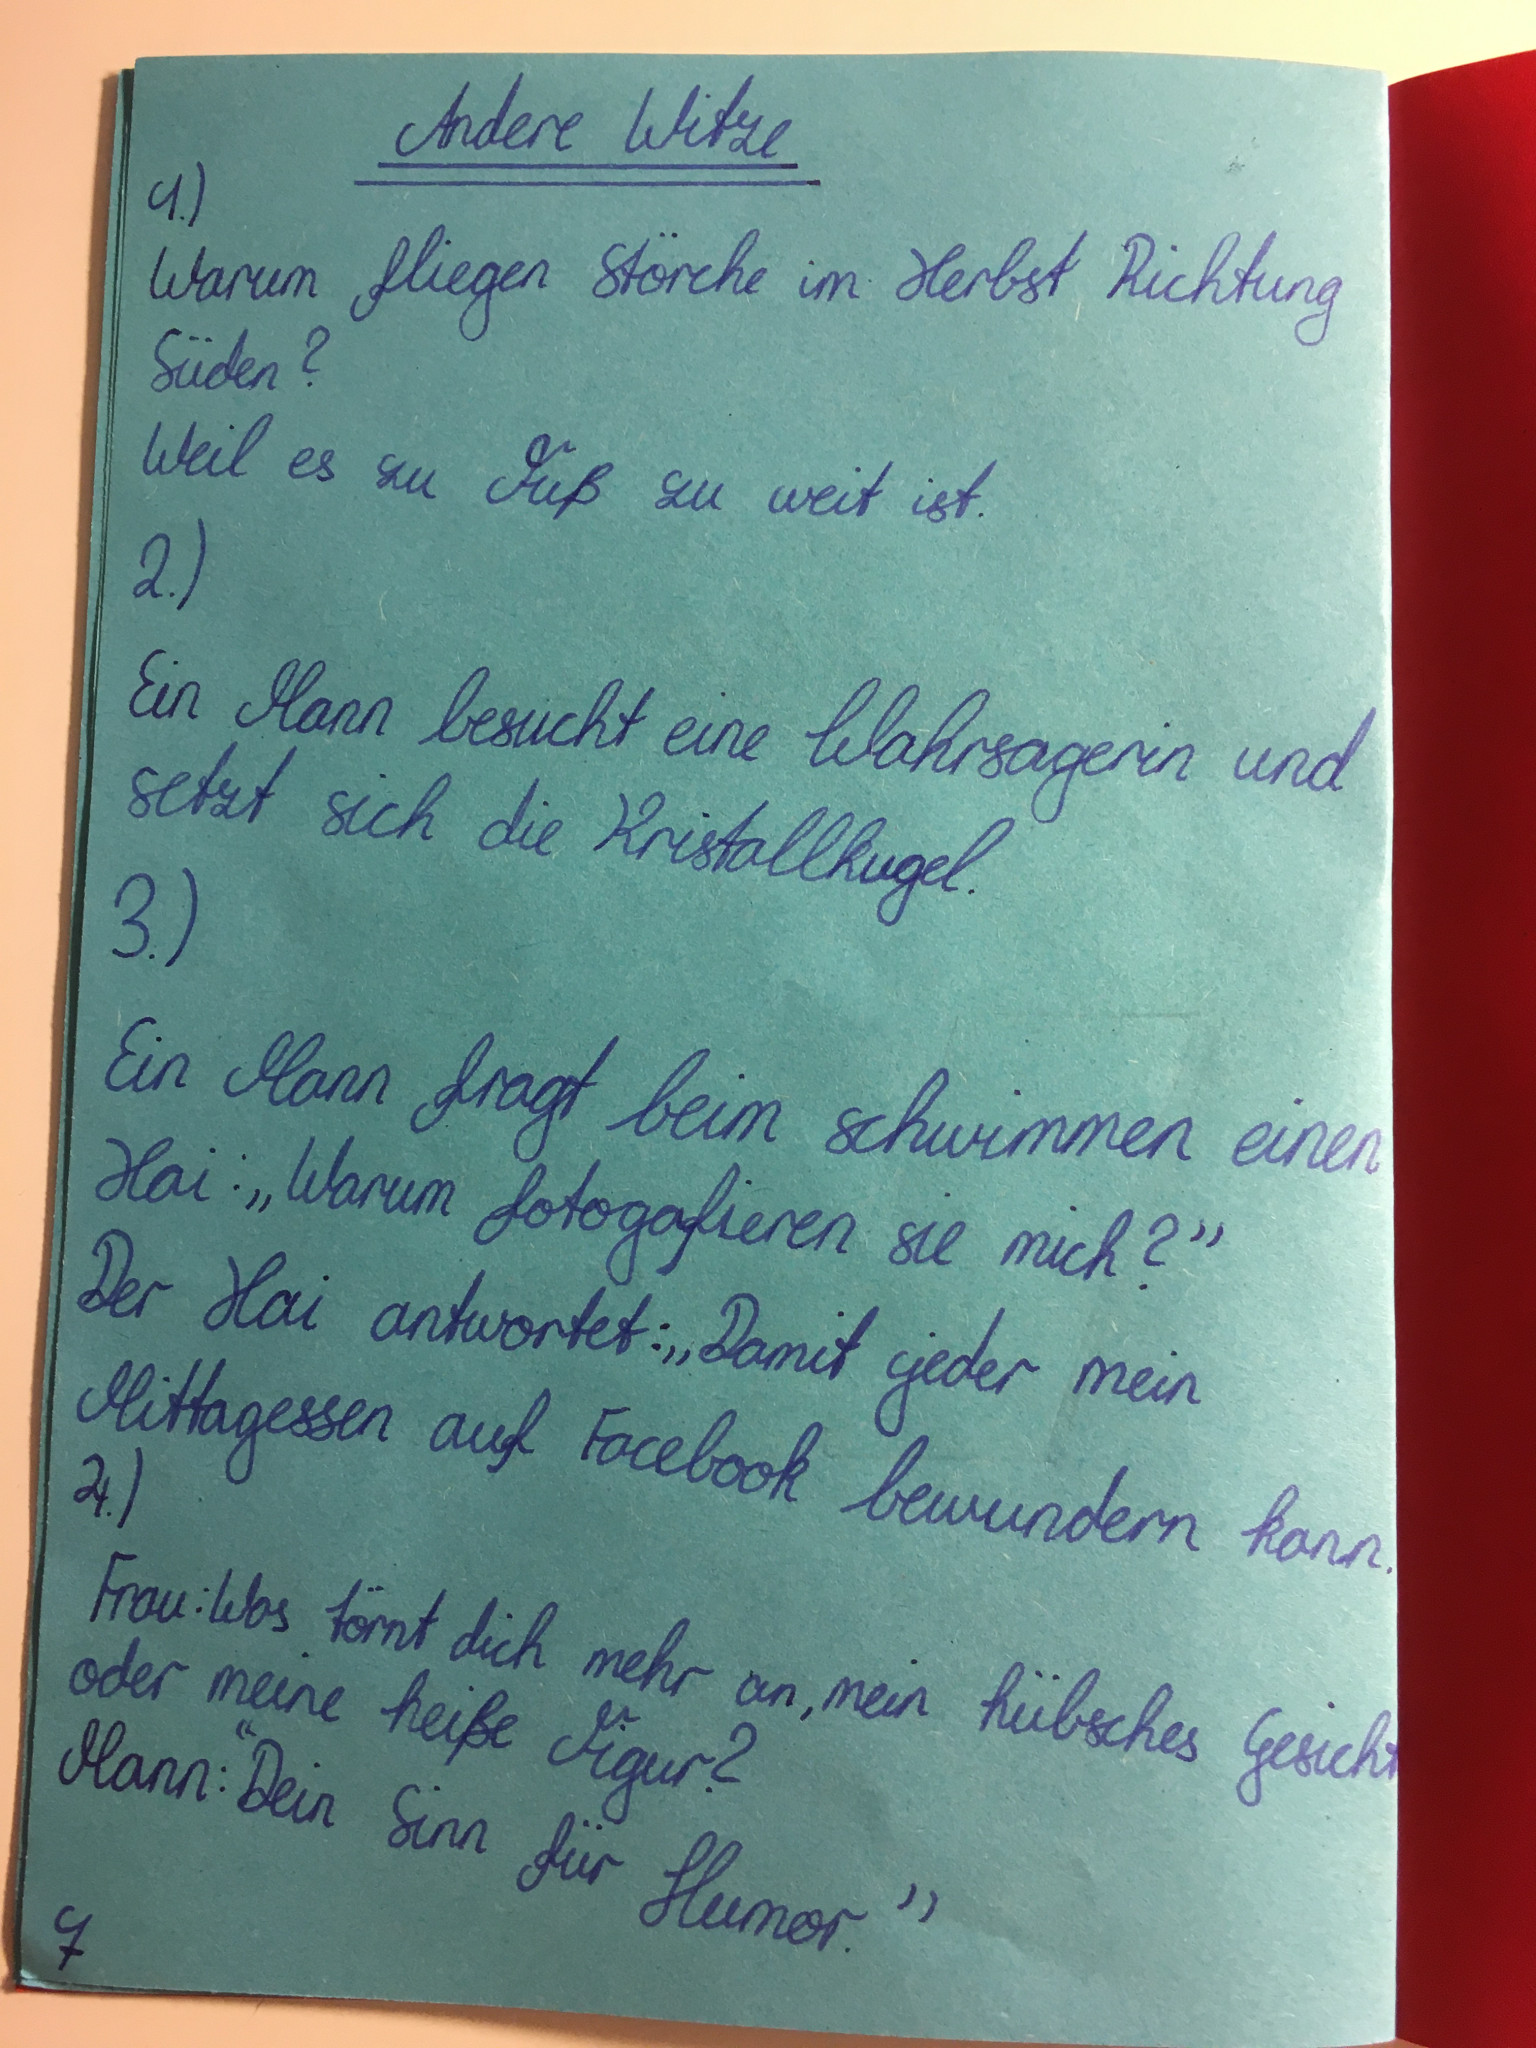 Andere Witze
1.)
Warum fliegen Störche im Herbst Richtung
Süden?
Weil es zu Fuß zu weit ist.
2.)
Ein Mann besucht eine Wahrsagerin und
setzt sich die Kristallkugel.
3.)
Ein Mann fragt beim schwimmen einen
Hai: „Warum fotogafieren sie mich?”
Der Hai antwortet: „Damit jeder mein
Mittagessen auf Facebook bewundern kann.
4.)
Frau: Was törnt dich mehr an, mein hübsches Gesicht
oder meine heiße Figur?
Mann: “Dein Sinn für Humor.”
7